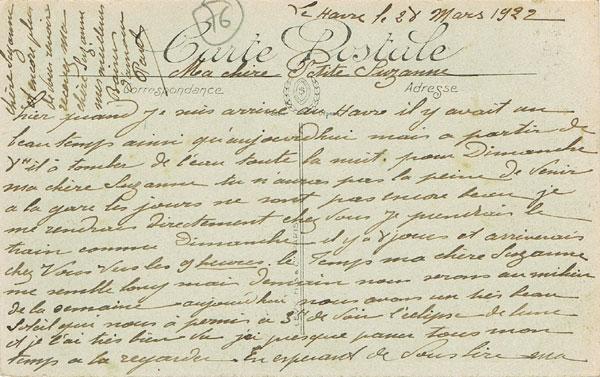 376
Le Havre le 28 Mars 1922
Carte Postale
Ma chère Petite Suzanne
Correspondance Adresse
hier quand je suis arrivé au Havre il y avait un
beau temps ainsi qu'aujourd'hui mais a partir de
il à tomber de l'eau toute la nuit. pour Dimanche
ma chère Suzanne tu n'auras pas la peine de venir
a la gare les jours ne sont pas encore beau je
me rendrais directement chez vous je prendrais le
train comme Dimanche il y a 8 jours et arriverais
chez vous vers les 9 heures. le temps ma chère Suzanne
me semble long mais demain nous serons au milieu
de la semaine aujourd'hui nous avons un très beau
Soleil que nous à permis à 3h de voir l'eclipse de lune
et je l'ai très bien vu j'ai presque passer tous mon
temps a la regarder. En esperant de vous lire ma
chère Suzanne
recevez ma
chère Suzanne
mes meilleurs
Baisers